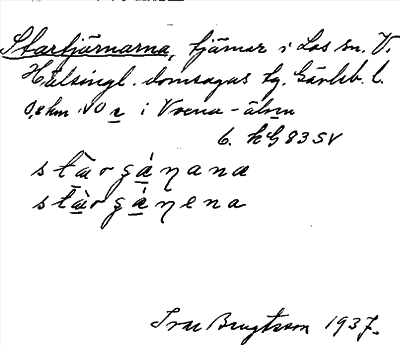 Starrtjärnarna, tjärnar i Los sn. V.
Hälsingl. domsagas tg. Gävleb. l.
0,8 km NO r i Vrena-älven
6. hG 83 SV
stàrgánana
stàrgánena
Ivar Bengtsson 1937.